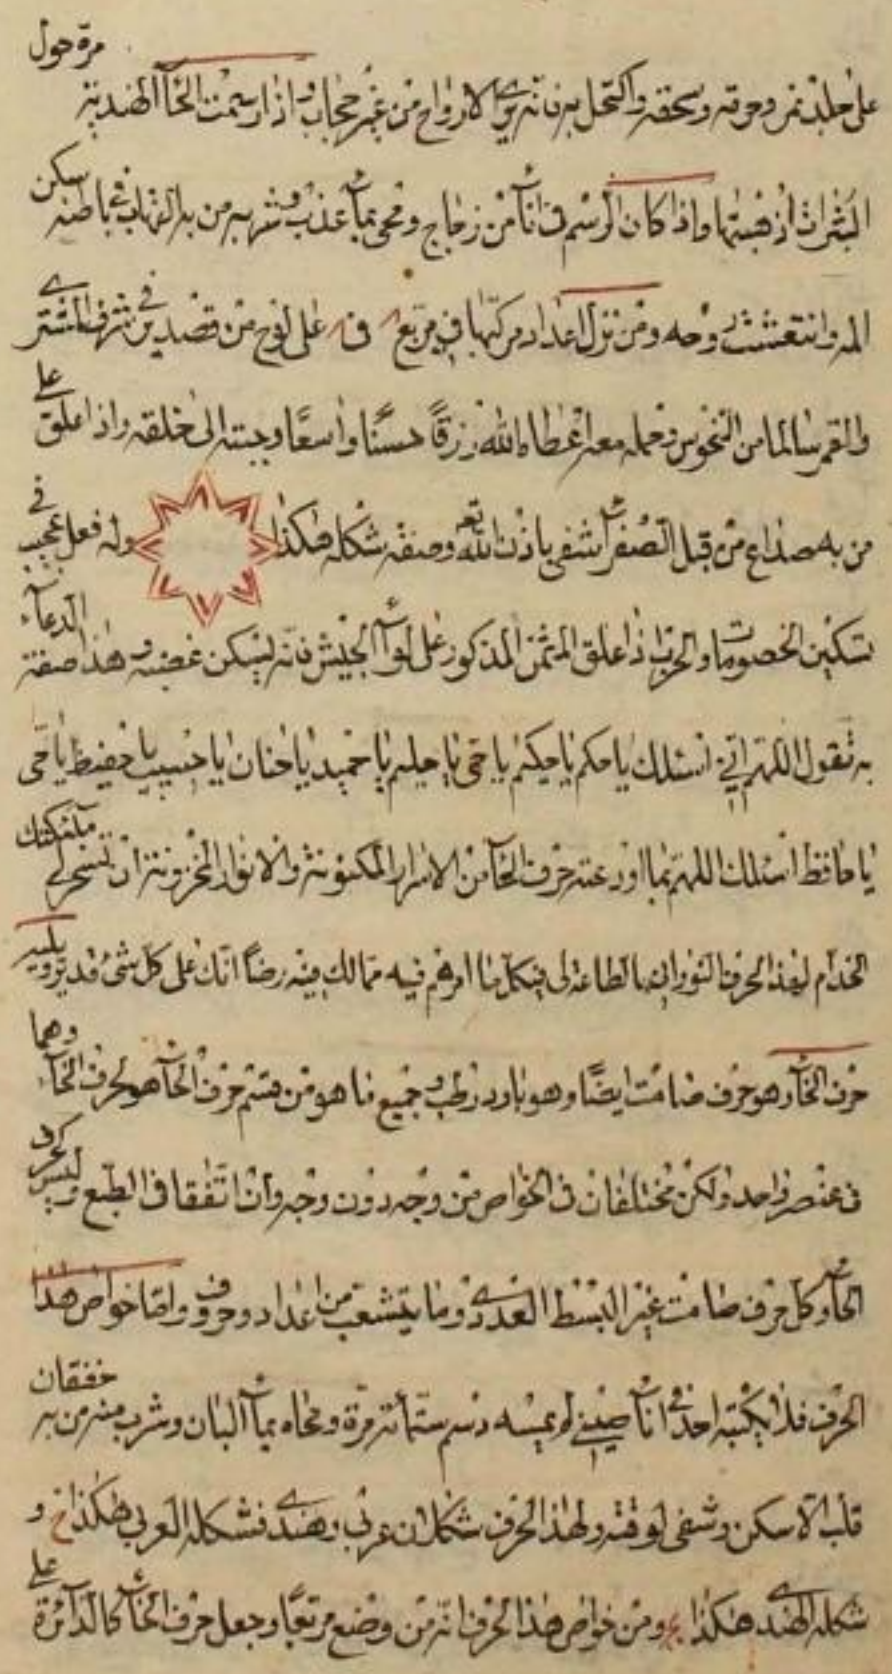 على جلد نمر وحرقه وسحقه واكتحل به فانه يرى الارواح من غير حجاب واذا رسمت الحاآ الهندية مرة حول
البثرات اذهبتها واذا كان الرسم فى اناآ من زجاج ومحى بماآ عذب وشربه من به التهاب فى باطنه سكن
المه وانتعشت روحه ومن نزل اعداد مركبها فى مربع على لوح من قصدير فى شرف المشترى
والقمر سالما من النحوس وحمله معه اعطاه الله رزقًا حسنًا واسعًا وحببته الى خلقه واذا علق على
من به صداع من قبل الصفراآ شفى باذن الله تعه وصفة شكله هكذا وله فعل عجيب فى
تسكين الخصومات والحرب اذا علق المثمن المذكور على لوآآ الجيش فانه يسكن غضبه وهذا صفة الدعاآ
به تقول اللهم انى اسئلك يا حكم يا حكيم يا حى يا حليم يا حميد يا حنان يا حسيب يا حفيظ يا حى
يا حافظ اسئلك اللهم بما اودعته حرف الحاآ من الاسرار المكنونة والانوار المخزونة ان تسخر لى ملئكتك
الخدام لهذا الحرف النورانى بالطاعة لى فى كل ما امرهم فيه مما لك فيه رضًا انك على كل شئ قدير ويليه
حرف الخاآ وهو حرف صامت ايضًا وهو بارد رطب وجميع ما هو من قسم حرف الحاآ هو لحرف الخاآ وهما
فى عنصر واحد ولكن مختلفان فى الخواص من وجه دون وجه وان اتفقا فى الطبع وليس كحرف
الخاآ وكل حرف صامت غير البسط العددى وما يتشعب من اعداد وحروف واما خواص هذا
الحرف فلا يكتبه احد فى اناآ صينى لم يمسه دسم ستمائة مرة ومحاه بماآ البان وشرب منه من به خفقان
قلب الا سكن وشفى لوقته ولهذا الحرف شكلان عربى وهندى فشكله العربى هكذا خ و
شكله الهندى هكذا ومن خواص هذا الحرف انه من وضع مربعًا وجعل حرف الخاآ كالدآئرة على